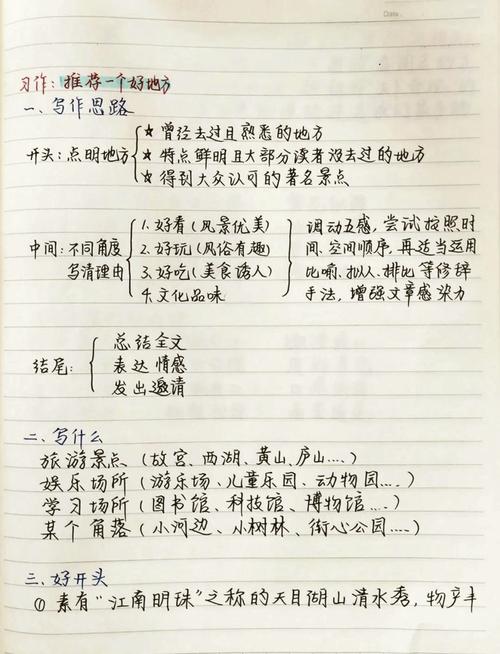 Date.
习作：推荐一个好地方
一、写作思路
开头：点明地方
★ 曾经去过且熟悉的地方
★ 特点鲜明且大部分读者没去过的地方
★ 得到大众认可的著名景点
中间：不同角度
写清理由
1. 好看（风景优美）
2. 好玩（风俗有趣）
3. 好吃（美食诱人）
4. 文化品味
调动五感，尝试按照时
间、空间顺序，再适当运用
比喻、拟人、排比等修辞
手法，增强文章感染力
结尾：
总结全文
表达情感
发出邀请
二、写什么
旅游景点（故宫、西湖、黄山、庐山....）
娱乐场所（游乐场、儿童乐园、动物园....）
学习场所（图书馆、科技馆、博物馆....）
某个角落（小河边、小树林、街心公园....）
三、好开头
① 素有“江南明珠”之称的天目湖山清水秀，物产丰